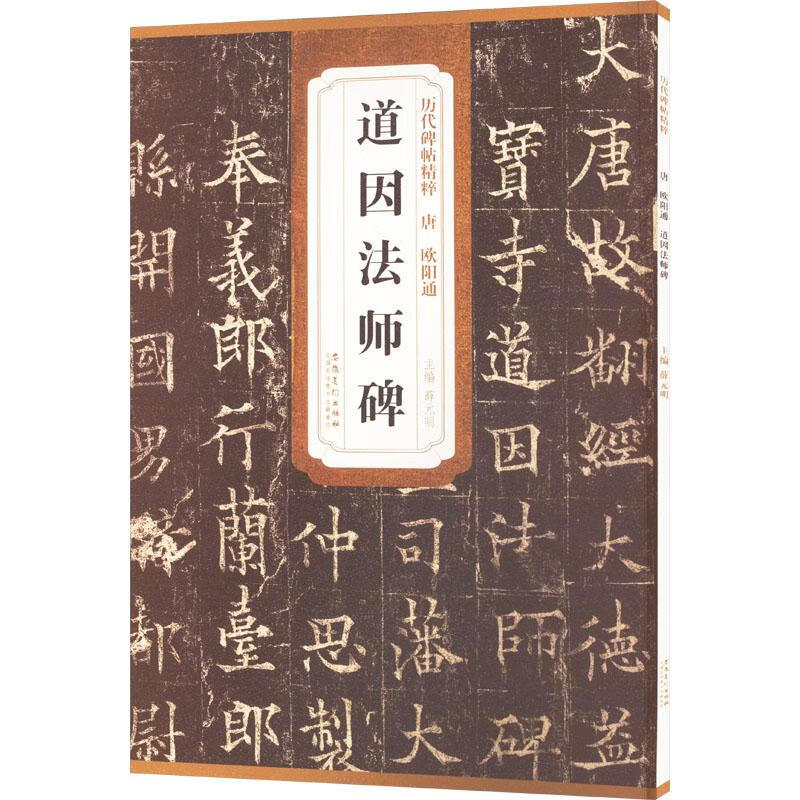 历代碑帖精粹 唐 欧阳通
道因法师碑
主编 薛元明
安徽美术出版社
大唐故翻經大德益
寶寺道因法師碑
司藩大
仲思製
奉義郎行蘭臺郎
縣開國男
都尉
历代碑帖精粹 唐 欧阳通 道因法师碑 主编 薛元明 安徽美术出版社